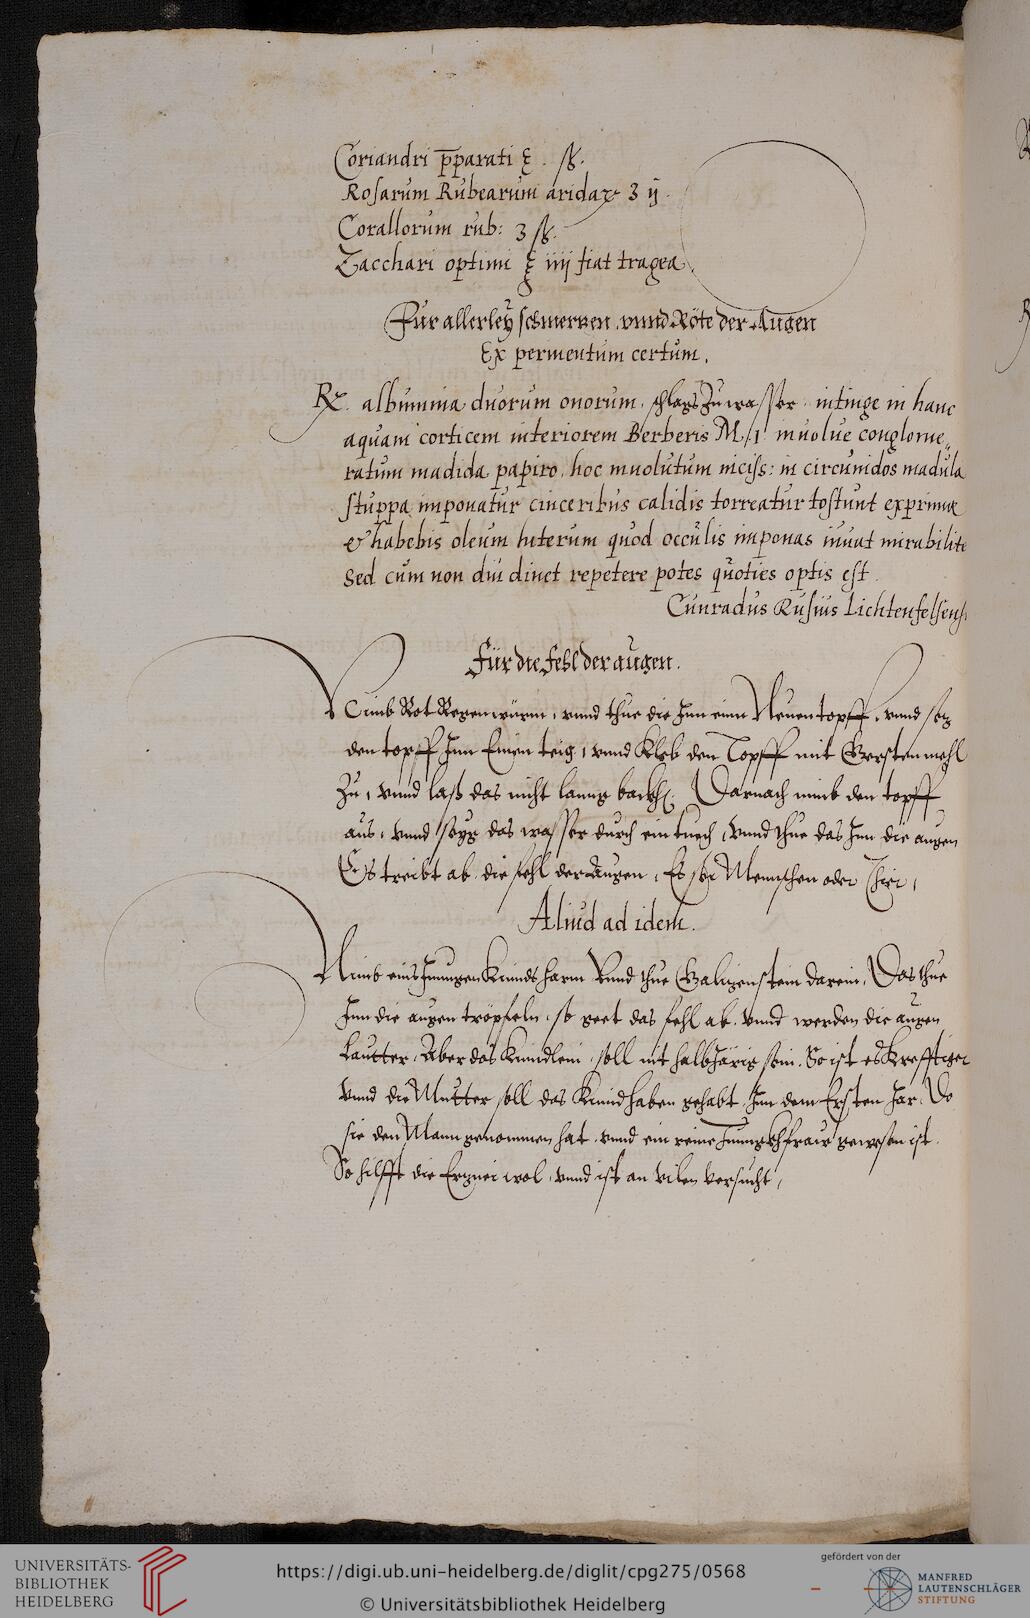 Coriandri p̄parati ℥ . ß.
Rosarum Rubearum aridaꝝ ʒ ij.
Corallorum rub: ʒ ß.
Zacchari optimi ℥ iiij fiat tragea
Für allerley schmertzen vnnd Röte der Augen
Experimentum certum.
℞. albumina duorum ouorum, schlags zu wasser intinge in hanc
aquam corticem interiorem Berberis M. j inuolue conglome„
ratum madida papiro, hoc inuolutum in circumdos madula
stuppa imponatur cineribus calidis torreatur tostum exprimæ
& habebis oleum luteum quod occulis imponas iuuat mirabilite
Sed cum non diu duret repetere potes quoties optis est.
Cunradus Rusius Lichtenfelsens
Für die fehl der augen.
Nimb Rot Regenwürm, vnnd thue die Inn einn Neuen topff, vnnd setz
den topff Inn Einen teig, vnnd kleb den Topff mit Gerstenmehl
zu, vnnd laß das nicht lanng backh. Darnach nimb den topff
aus, vnnd seyg das wasser durch ein tuech, vnnd thue das Inn die augen
Es treibt ab die fehl der Augen, Es sey Mennschen oder Thier,
Aliud ad idem.
Nimb eins Jungen Kinnds harm Vnnd thue Galitzenstein darein, Das thue
Inn die augen tröpfeln, so geet das fehl ab, vnnd werden die augen
Lautter, Aber das Kinndlein soll nit halbJärig sein. So ist es krefftiger
vnnd die Mutter soll das Kinnd haben gehabt Inn dem Ersten Jar, Do
sie den Mann genommen hat, vnnd ein reine Junngkhfraw gewesen ist.
So hilfft die Ertznei wol, vnnd ist an vilen versucht,
UNIVERSITÄTS-
BIBLIOTHEK
HEIDELBERG
https://digi.ub.uni-heidelberg.de/diglit/cpg275/0568
© Universitätsbibliothek Heidelberg
gefördert von der
MANFRED
LAUTENSCHLÄGER
STIFTUNG